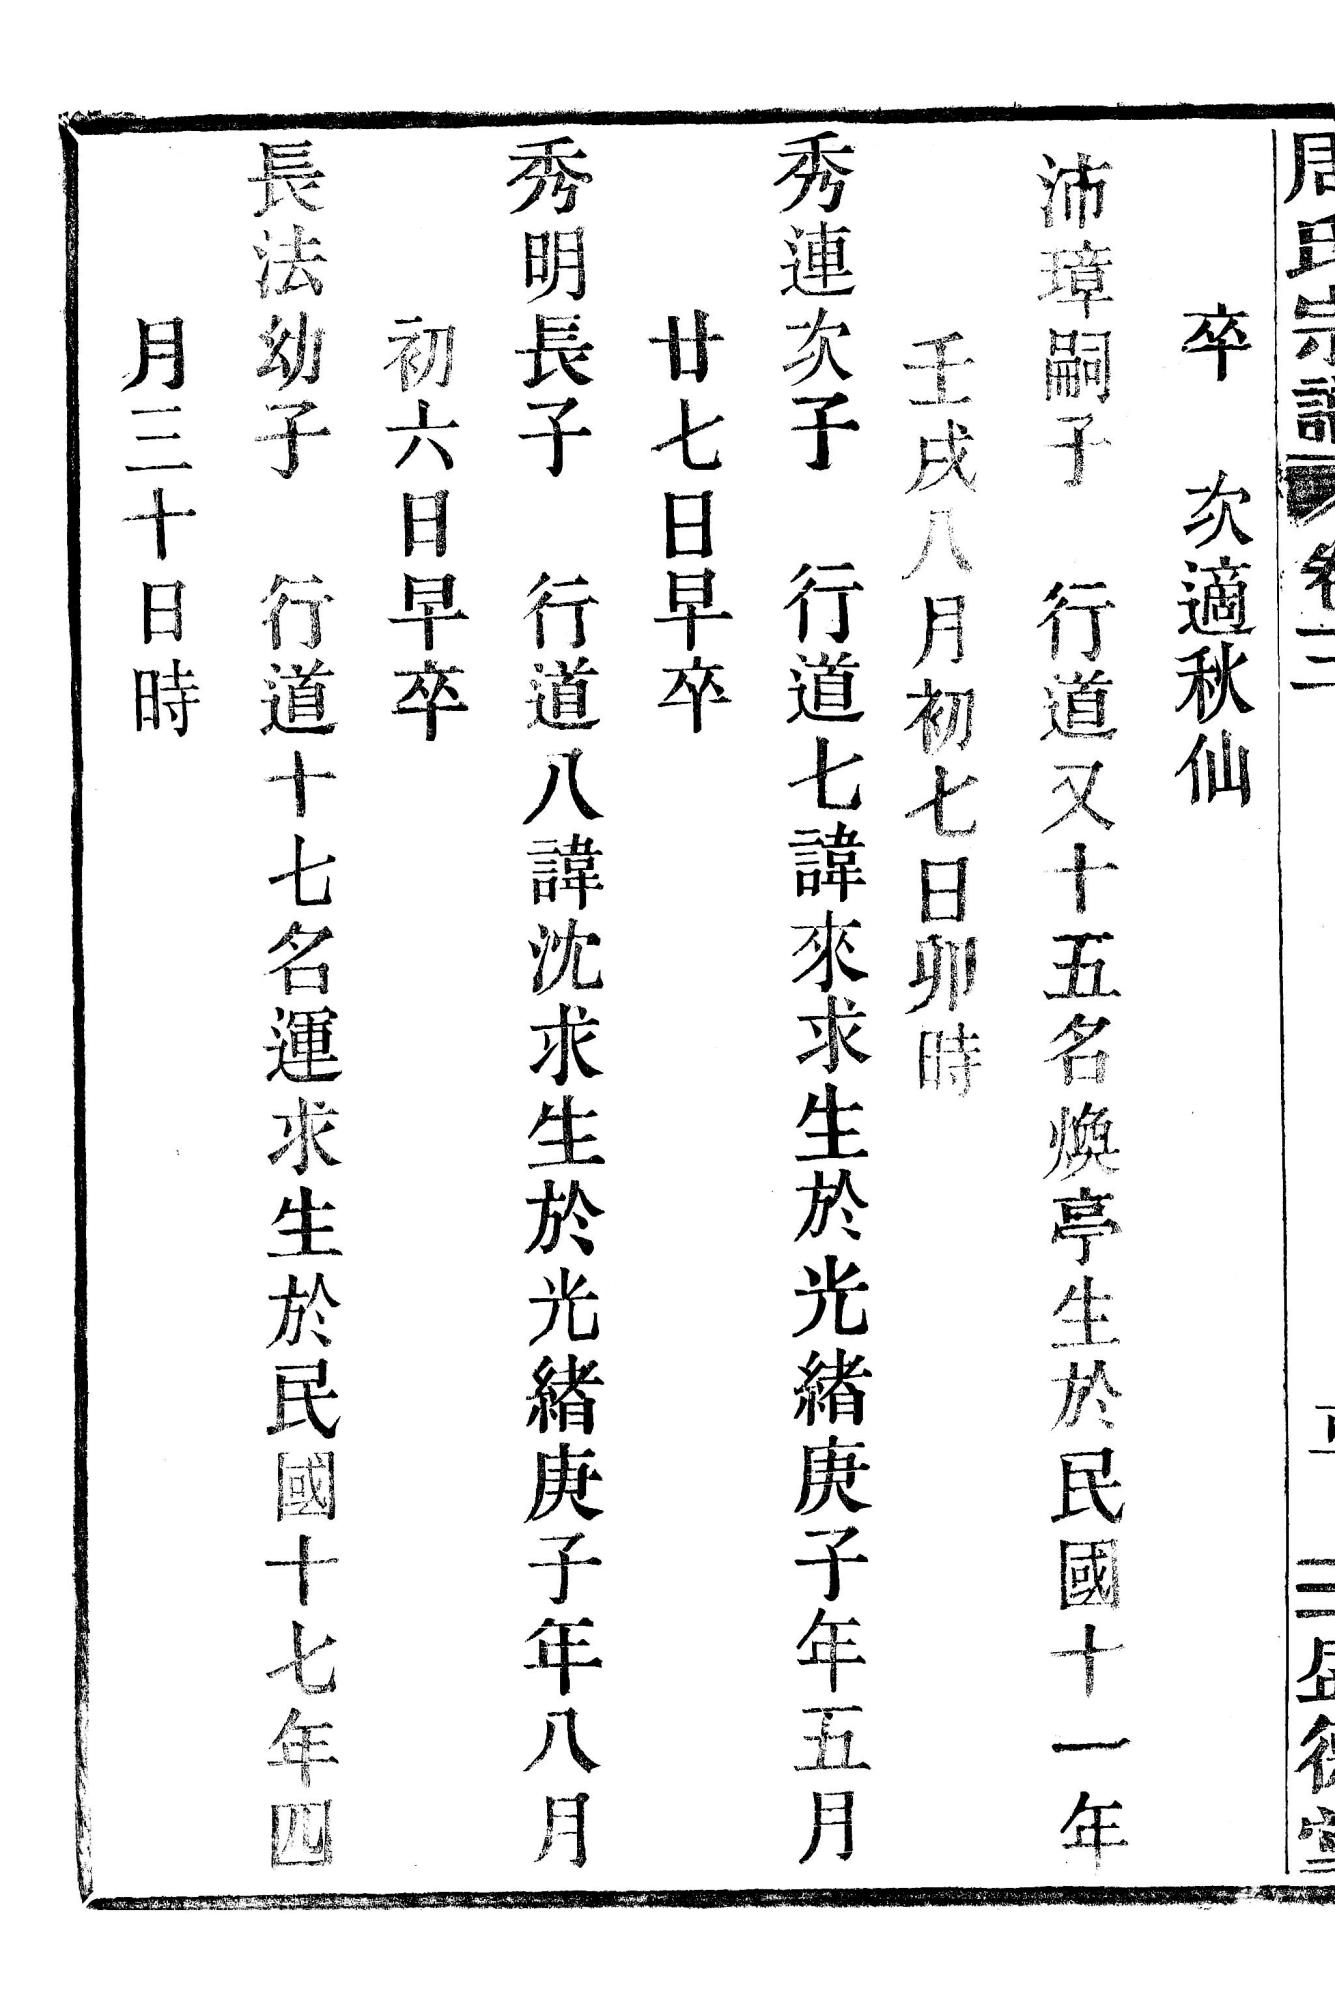 周氏宗譜 卷二 三盛德堂
卒 次適秋仙
沛璋嗣子 行道又十五名煥亭生於民國十一年
壬戌八月初七日卯時
秀連次子 行道七諱來求生於光緒庚子年五月
廿七日早卒
秀明長子 行道八諱沈求生於光緒庚子年八月
初六日早卒
長法幼子 行道十七名運求生於民國十七年四
月三十日時